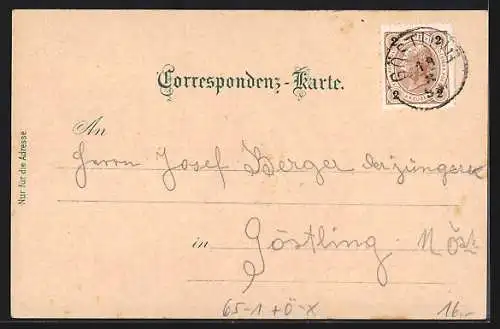 GÖSTLING
2 2
19
2 2
Correspondenz-Karte.
Nur für die Adresse
An
Herrn Josef Berger der jüngere
in Göstling N.Öst.
65-1+Ö-X 16.-